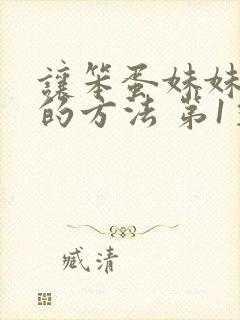 讓笨蛋妹妹
的方法 第1
臧清